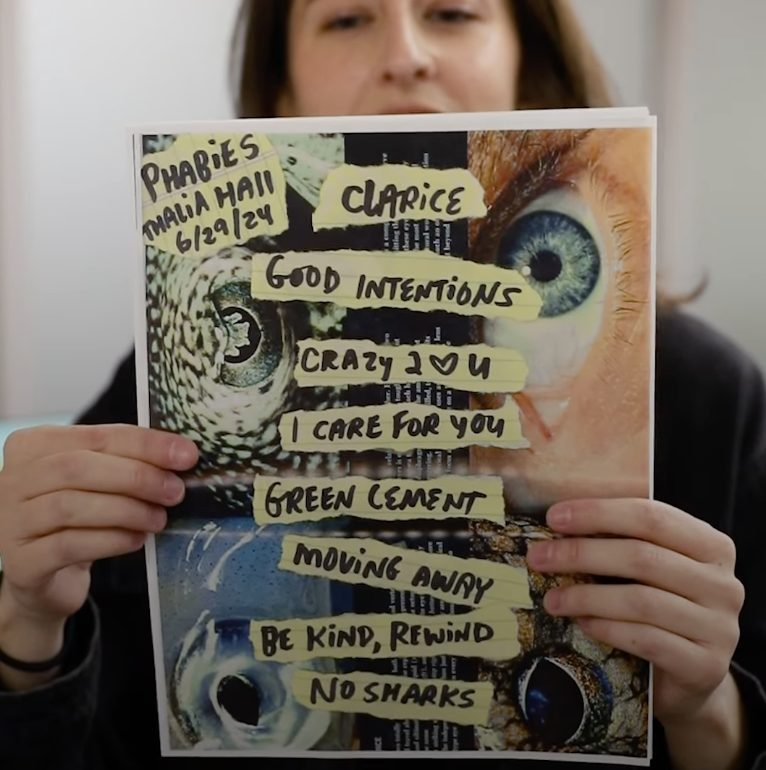 PHABiES
THALiA HAll
6/29/24
CLARiCE
GOOD INTENTiONS
CRAZY 2 ♡ U
I CARE FOR YOU
GREEN CEMENT
MOViNG AWAY
BE KiND, REWiND
NO SHARKS